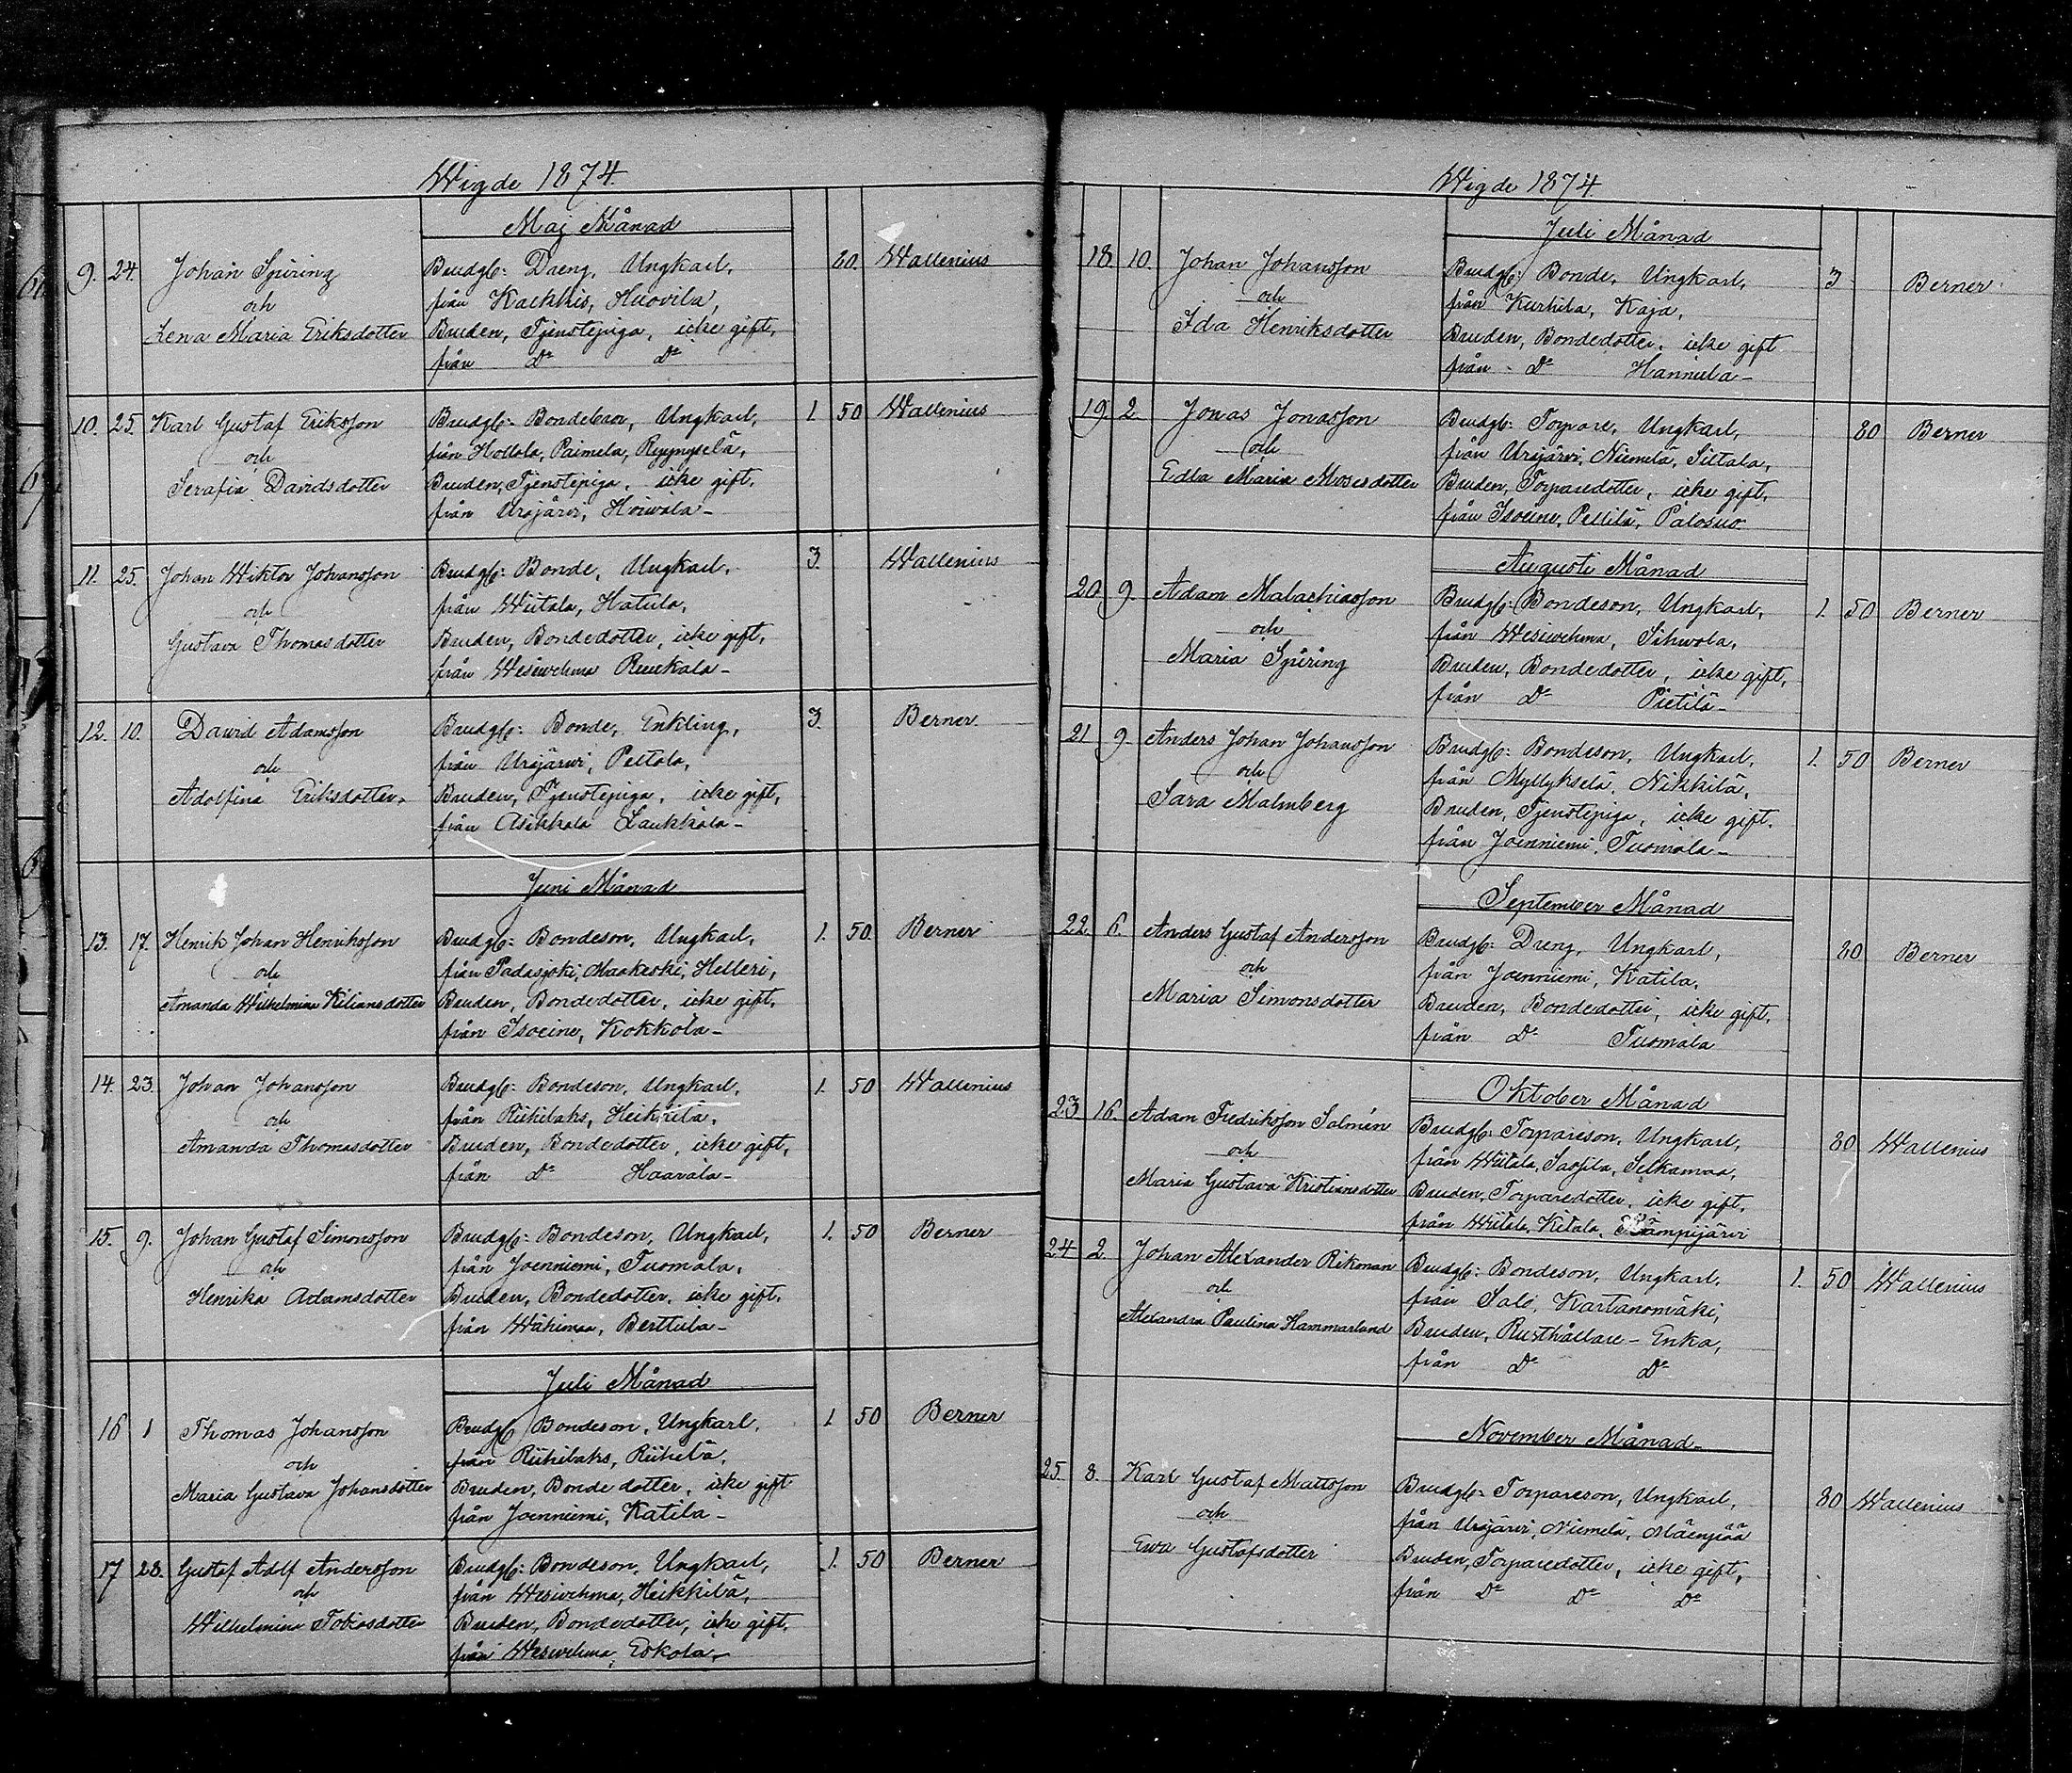 Wigde 1874.
Maj Månad
9. 24. Johan Spiring
och
Lena Maria Eriksdotter
Brudg: Dreng, Ungkarl,
från Kackkis, Huovila,
Bruden, Tjenstepiga, icke gift,
från Do Do
80. Wallenius
10. 25. Karl Gustaf Eriksson
och
Serafia Davidsdotter
Brudg: Bondeson, Ungkarl,
från Hollola, Paimela,
Bruden, Tjenstepiga, icke gift,
från Urajärvi, Hoivala-
1. 50 Wallenius
11. 25. Johan Wiktor Johansson
och
Gustava Thomasdotter
Brudg: Bonde, Ungkarl,
från Wiitala, Hatula,
Bruden, Bondedotter, icke gift,
från Wesiwehma Ruukala-
3. Wallenius
12. 10. David Adamsson
och
Adolfina Eriksdotter.
Brudg: Bonde, Enkling,
från Urajärwi, Peltola,
Bruden, Tjenstepiga, icke gift,
från Asikkala Laukkala-
3. Berner
Juni Månad
13. 17. Henrik Johan Henriksson
och
Amanda Wilhelmina Kiliansdotter
Brudg: Bondeson, Ungkarl,
från Padasjoki, Maakeski, Helleri,
Bruden, Bondedotter, icke gift,
från Isoeine, Kokkola-
1. 50. Berner
14. 23. Johan Johansson
och
Amanda Thomasdotter
Brudg: Bondeson, Ungkarl,
från Riihilaks, Heikkilä,
Bruden, Bondedotter, icke gift,
från Do Haavala-
1. 50 Wallenius
15. 9. Johan Gustaf Simonsson
och
Henrika Adamsdotter
Brudg: Bondeson, Ungkarl,
från Joenniemi, Tuomala,
Bruden, Bondedotter, icke gift,
från Wähimaa, Berttula-
1. 50 Berner
Juli Månad
16 1 Thomas Johansson
och
Maria Gustava Johansdotter
Brudg Bondeson, Ungkarl,
från Riihilaks, Riihelä,
Bruden, Bonde dotter, icke gift
från Joenniemi, Katila-
1. 50 Berner
17 28. Gustaf Adlf Andersson
och
Wilhelmina Tobiasdotter
Brudg: Bondeson, Ungkarl,
från Wesiwehma, Heikkilä,
Bruden, Bondedotter, icke gift,
från Wesiwehma, Eskola,-
1. 50 Berner
Wigde 1874.
Juli Månad
18. 10. Johan Johansson
och
Ida Henriksdotter
Brudg: Bonde, Ungkarl,
från Kurhila, Kaja,
Bruden, Bondedotter, icke gift
från Do Hannula-
3 Berner
19. 2. Jonas Jonasson
och
Edla Maria Mosesdotter
Brudg: Torpare, Ungkarl,
från Urajärvi, Niemelä, Siltala,
Bruden, Torparedotter, icke gift,
från Isoeine, Pellilä, Palosuo
80 Berner
Augusti Månad
20. 9. Adam Malachiasson
och
Maria Spiring
Brudg: Bondeson, Ungkarl,
från Wesiwehma, Sihvola,
Bruden, Bondedotter, icke gift,
från Do Pietilä-
1. 50 Berner
21 9. Anders Johan Johansson
och
Sara Malmberg
Brudg: Bondeson, Ungkarl,
från Myllykselä, Nikkilä,
Bruden, Tjenstepiga, icke gift,
från Joenniemi, Tuomala-
1. 50 Berner
September Månad
22. 6. Anders Gustaf Andersson
och
Maria Simonsdotter
Brudg: Dreng, Ungkarl,
från Joenniemi, Katila,
Bruden, Bondedotter, icke gift,
från Do Tuomala
80 Berner
Oktober Månad
23 16. Adam Fredriksson Salmén
och
Maria Gustava Kristiansdotter
Brudg: Torpareson, Ungkarl,
från Wiitala, Sassila, Selkamaa,
Bruden, Torparedotter, icke gift,
från Wiitala, Kitala,
80 Wallenius
24 2. Johan Alexander Rikman
och
Alexandra Paulina Hammarlund
Brudg: Bondeson, Ungkarl,
från Salo, Kartanomäki,
Bruden, Rusthållare-Enka,
från Do Do
1. 50 Wallenius
November Månad-
25. 8. Karl Gustaf Mattsson
och
Ewa Gustafsdotter
Brudg: Torpareson, Ungkarl,
från Urajärvi, Niemelä, Mäenpää
Bruden, Torparedotter, icke gift,
från Do Do Do
80 Wallenius